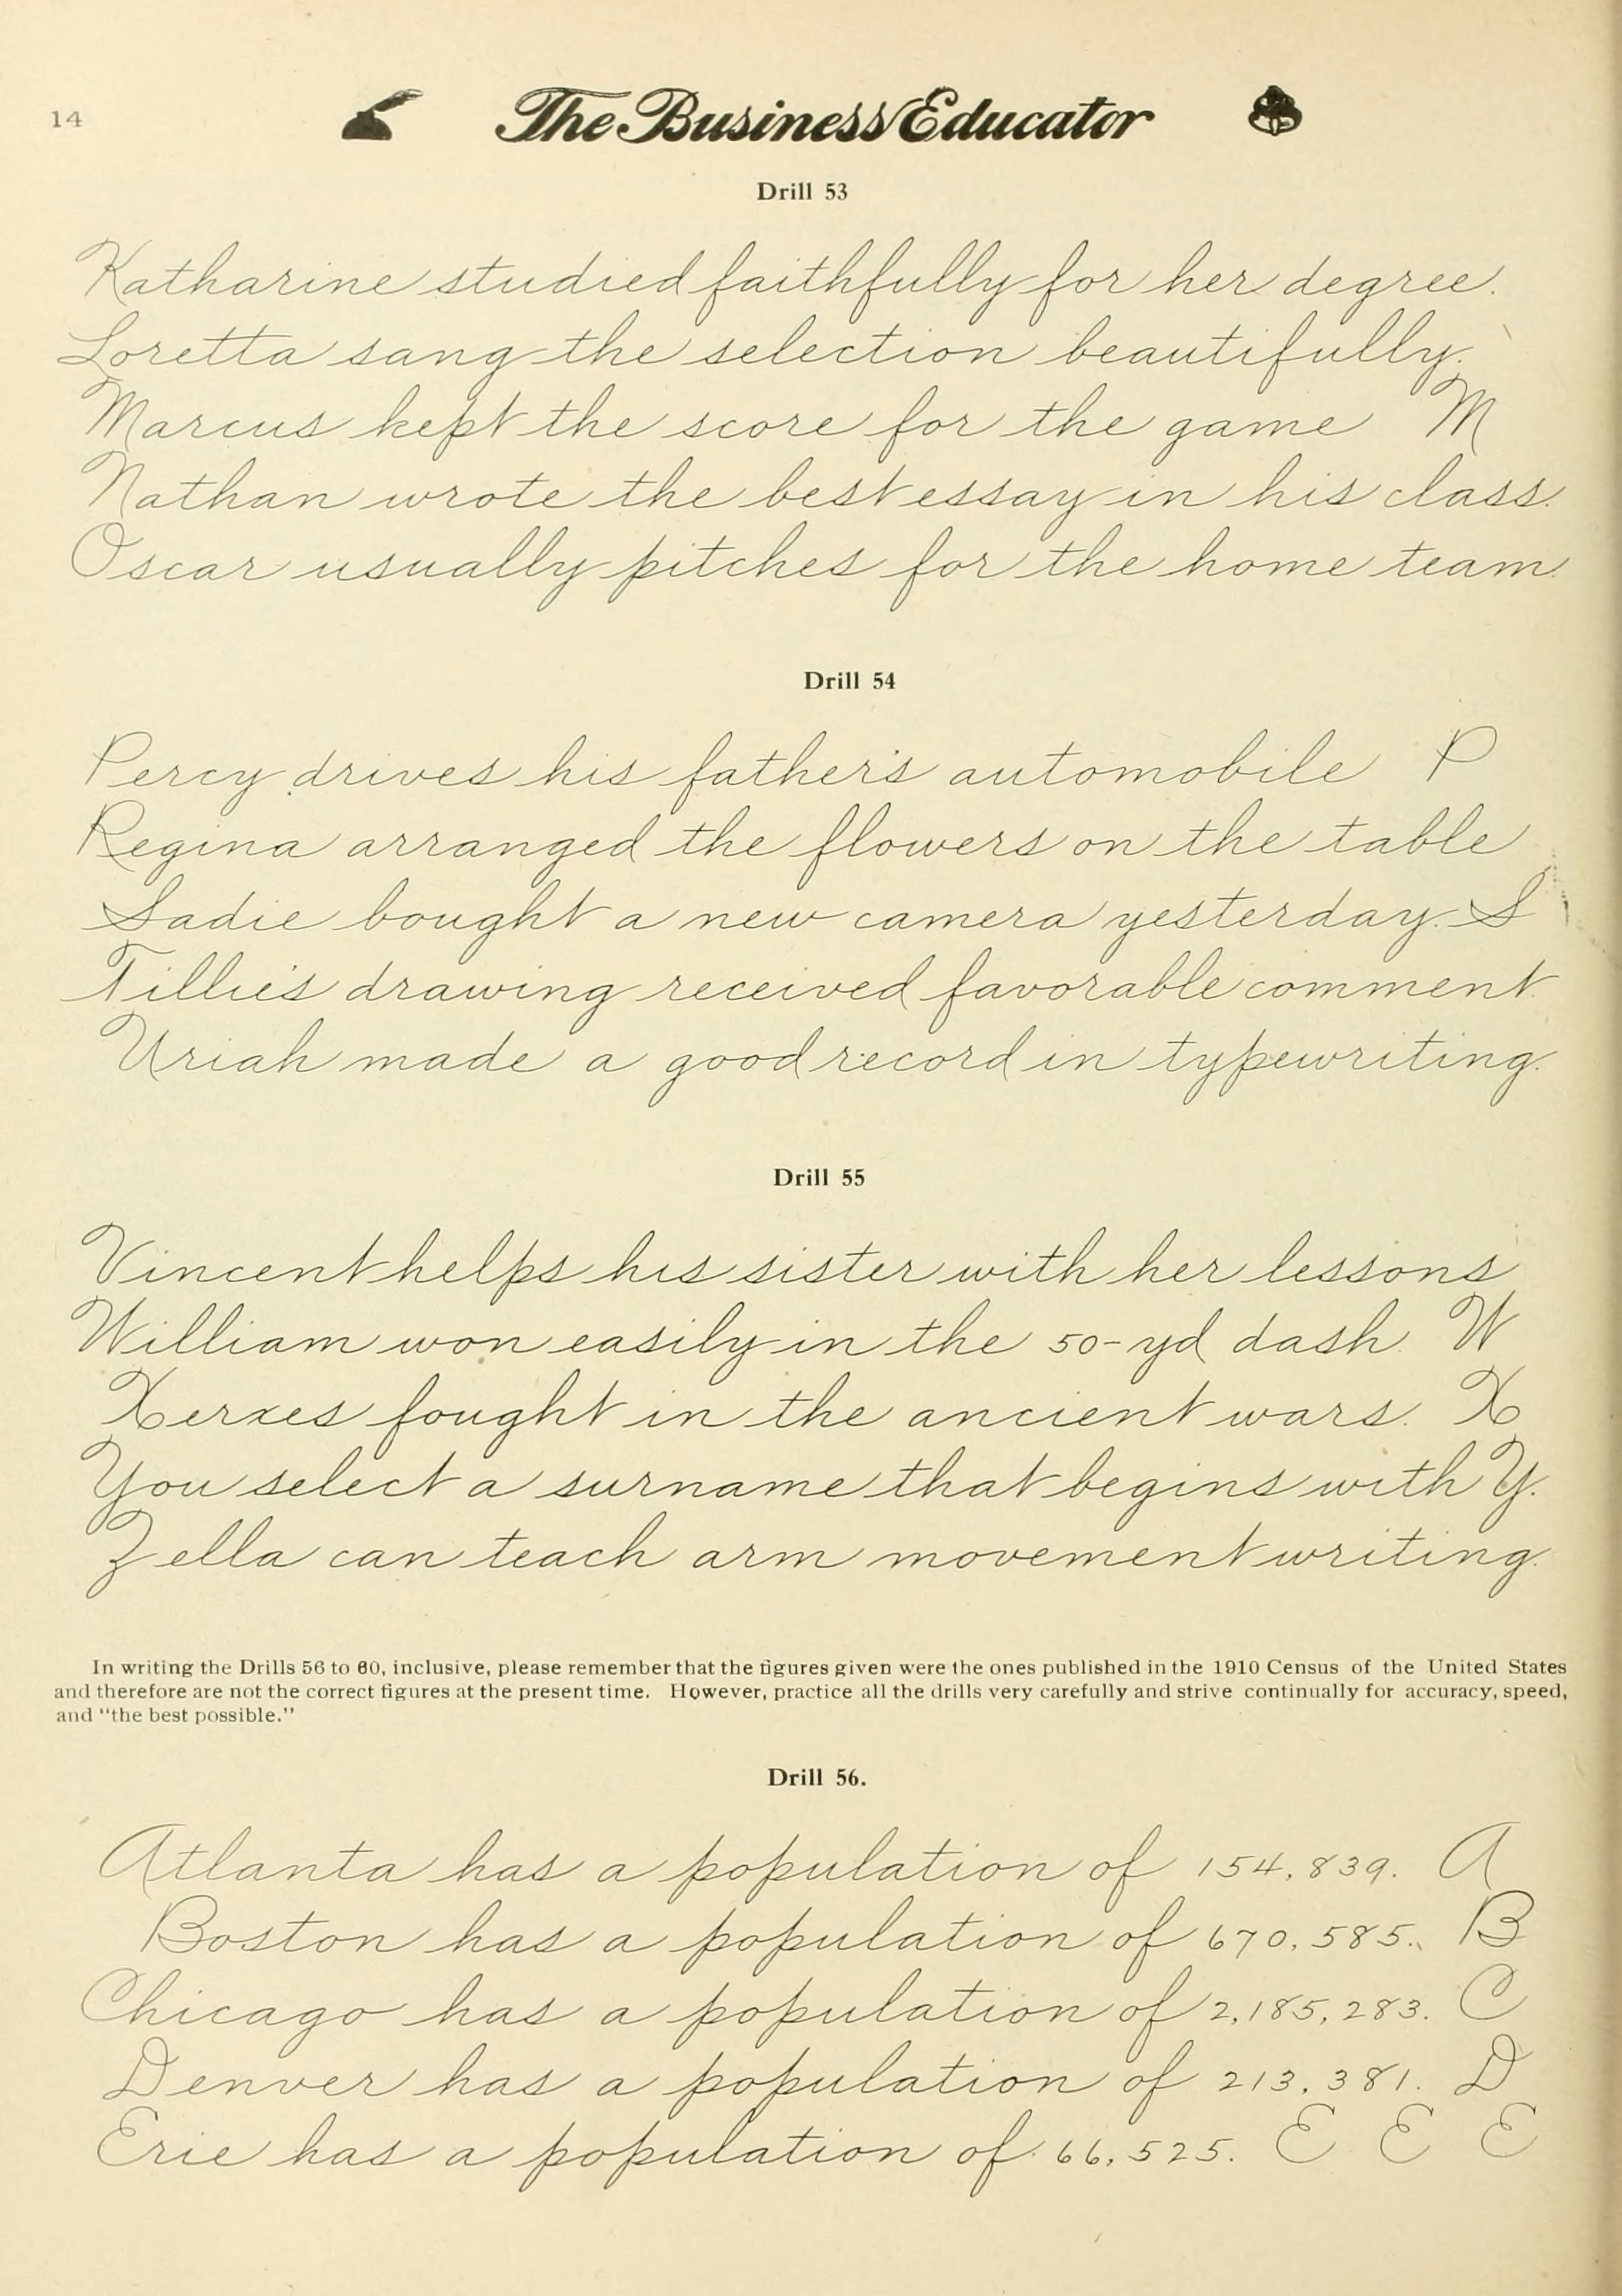 14
The Business Educator
Drill 53
Katharine studied faithfully for her degree.
Loretta sang the selection beautifully.
Marcus kept the score for the game M
Nathan wrote the best essay in his class.
Oscar usually pitches for the home team.
Drill 54
Percy drives his father's automobile P
Regina arranged the flowers on the table
Sadie bought a new camera yesterday. S
Tillie's drawing received favorable comment.
Uriah made a good record in typewriting.
Drill 55
Vincent helps his sister with her lessons
William won easily in the 50-yd dash. W
Xerxes fought in the ancient wars. X
You select a surname that begins with Y.
Zella can teach arm movement writing.
In writing the Drills 56 to 60, inclusive, please remember that the figures given were the ones published in the 1910 Census of the United States
and therefore are not the correct figures at the present time. However, practice all the drills very carefully and strive continually for accuracy, speed,
and "the best possible."
Drill 56.
Atlanta has a population of 154,839. A
Boston has a population of 670,585. B
Chicago has a population of 2,185,283. C
Denver has a population of 213,381. D
Erie has a population of 66,525. E E E